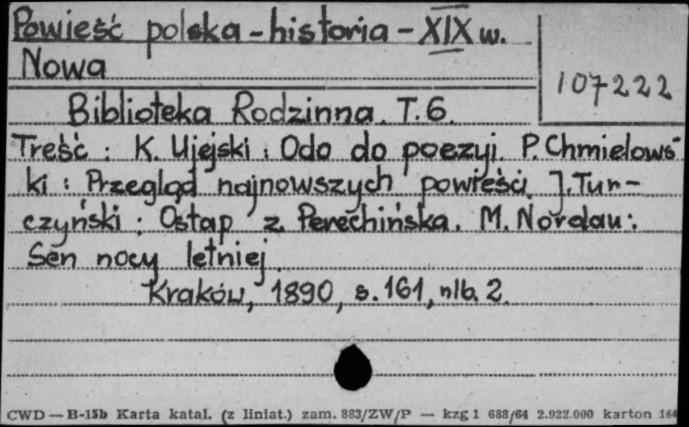 Powieść polska - historia - XIX w.
Nowa
107222
Biblioteka Rodzinna. T. 6.
Treść : K. Ujejski : Odo do poezyi. P. Chmielows
ki : Przegląd najnowszych powieści. J. Tur-
czyński : Ostap z Perechińska. M. Nordau :
Sen nocy letniej.
Kraków, 1890, s. 161, nlb. 2.
CWD — B-15b Karta katal. (z liniat.) zam. 883/ZW/P — kzg 1 688/64 2.922.000 karton